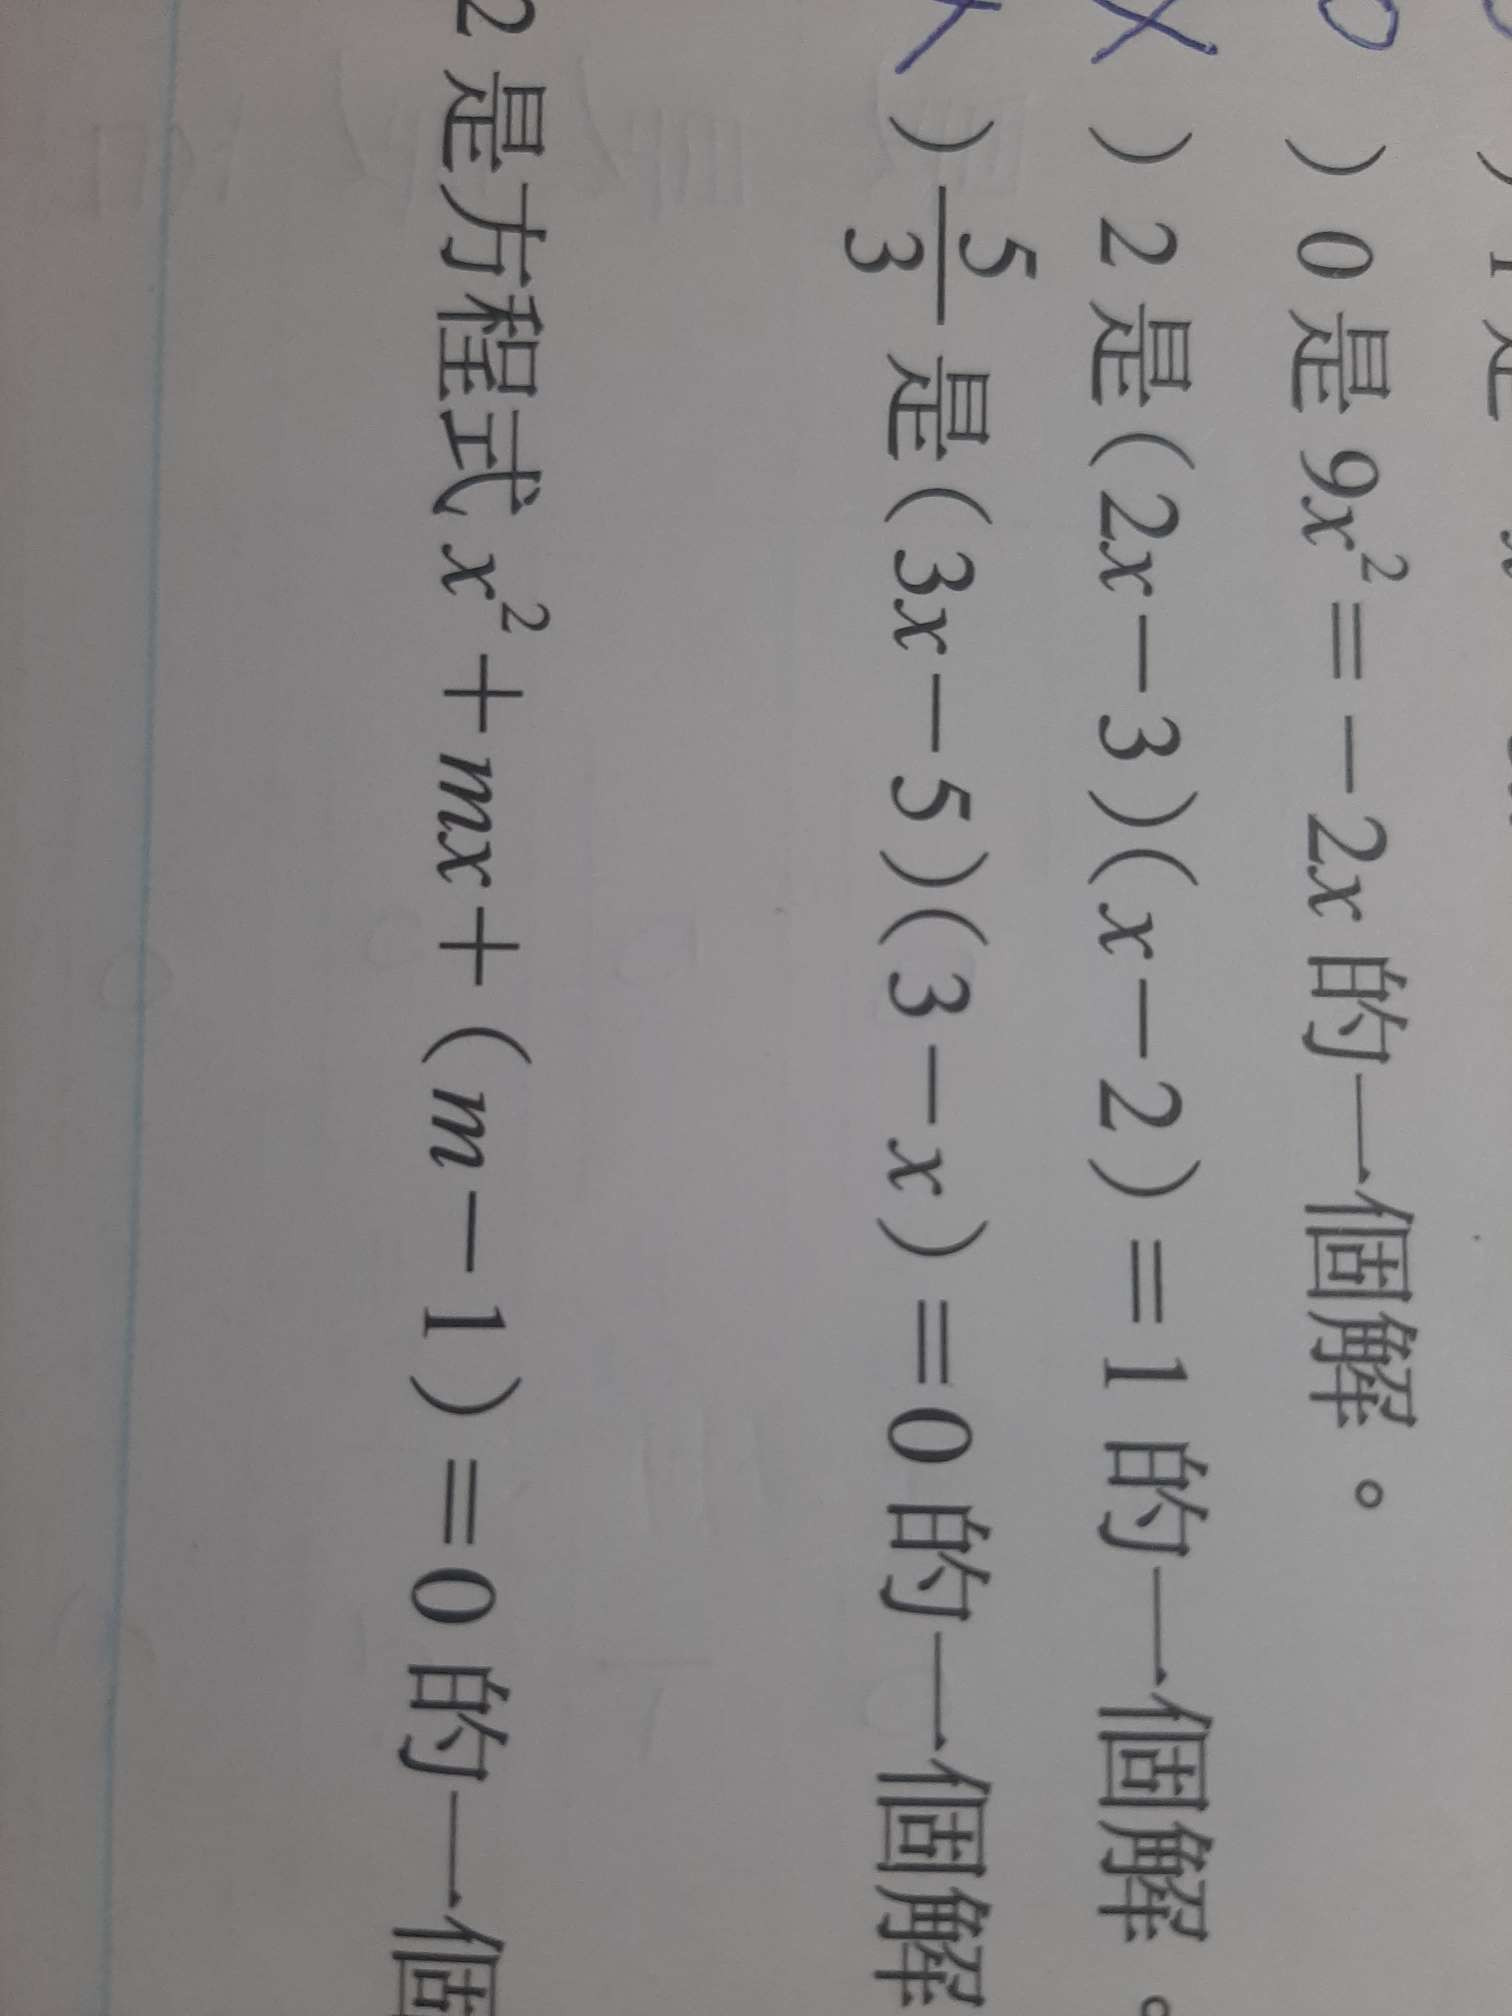 ) 0 是 9x² = −2x 的一個解。
X ) 2 是 (2x−3)(x−2) = 1 的一個解。
) 5/3 是 (3x−5)(3−x) = 0 的一個解
2 是方程式 x² + mx + (m−1) = 0 的一個